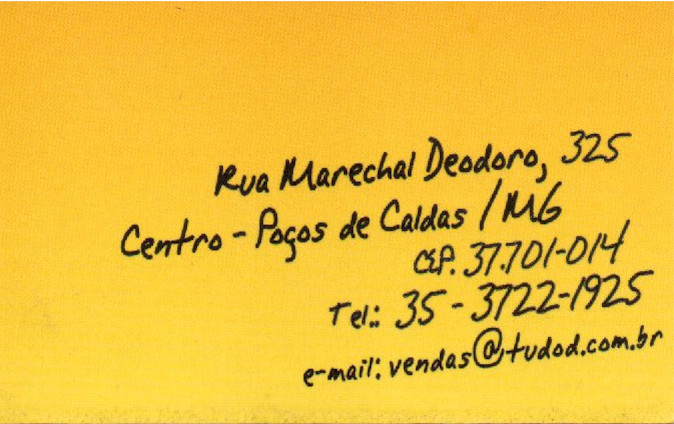 Rua Marechal Deodoro, 325
Centro - Poços de Caldas / MG
CEP. 37.701-014
Tel.: 35 - 3722-1925
e-mail: vendas@tudod.com.br